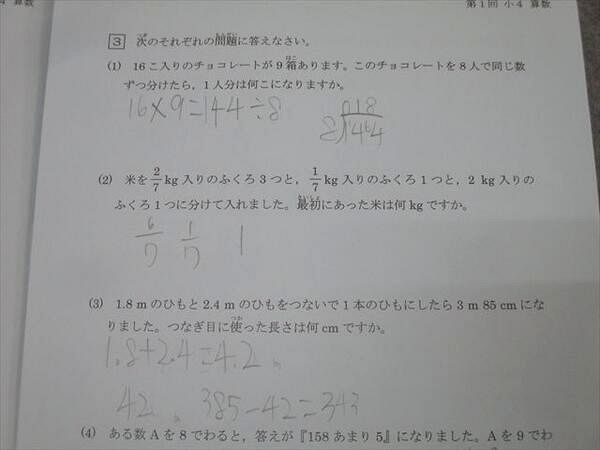 算数
第1回 小4 算数
3 次のそれぞれの問題に答えなさい。
(1) 16こ入りのチョコレートが9箱あります。このチョコレートを8人で同じ数
ずつ分けたら，1人分は何こになりますか。
16×9=144÷8
018
8)144
(2) 米を2/7kg入りのふくろ3つと，1/7kg入りのふくろ1つと，2 kg入りの
ふくろ1つに分けて入れました。最初にあった米は何kgですか。
6/7 1/7 1
(3) 1.8 mのひもと2.4 mのひもをつないで1本のひもにしたら3 m 85 cmにな
りました。つなぎ目に使った長さは何cmですか。
1.8+2.4=4.2
42 385-42=343
(4) ある数Aを8でわると，答えが『158あまり5』になりました。Aを9でわ